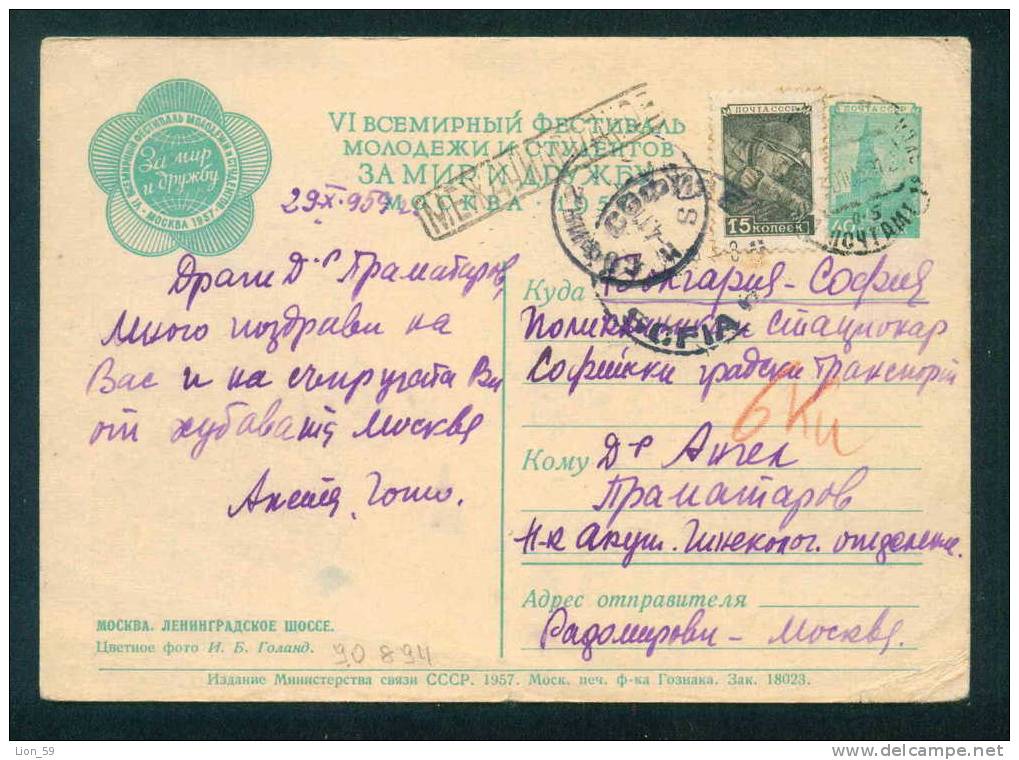 VI ВСЕМИРНЫЙ ФЕСТИВАЛЬ
МОЛОДЕЖИ И СТУДЕНТОВ
ЗА МИР И ДРУЖБУ
МОСКВА · 195
За мир
и дружбу
МОСКВА 1957
ПОЧТА СССР
15 КОПЕЕК
ПОЧТА СССР
40
МЕЖДУНАРОДНОЕ
SOFIA
29 X. 959 г.
Драги Д-р Праматаров,
Много поздрави на
Вас и на съпругата Ви
от хубавата Москва
Анета, Гошо.
Куда България - София
Поликлиника и стационар
Софийски градски транспорт
6 Ки
Кому Д-р Ангел
Праматаров
Н-к Акуш. Гинеколог. отделение.
Адрес отправителя
Радомирови - Москва.
МОСКВА. ЛЕНИНГРАДСКОЕ ШОССЕ.
Цветное фото И. Б. Голанд.
90894
Издание Министерства связи СССР. 1957. Моск. печ. ф-ка Гознака. Зак. 18023.
Lion_59
www.delcampe.net